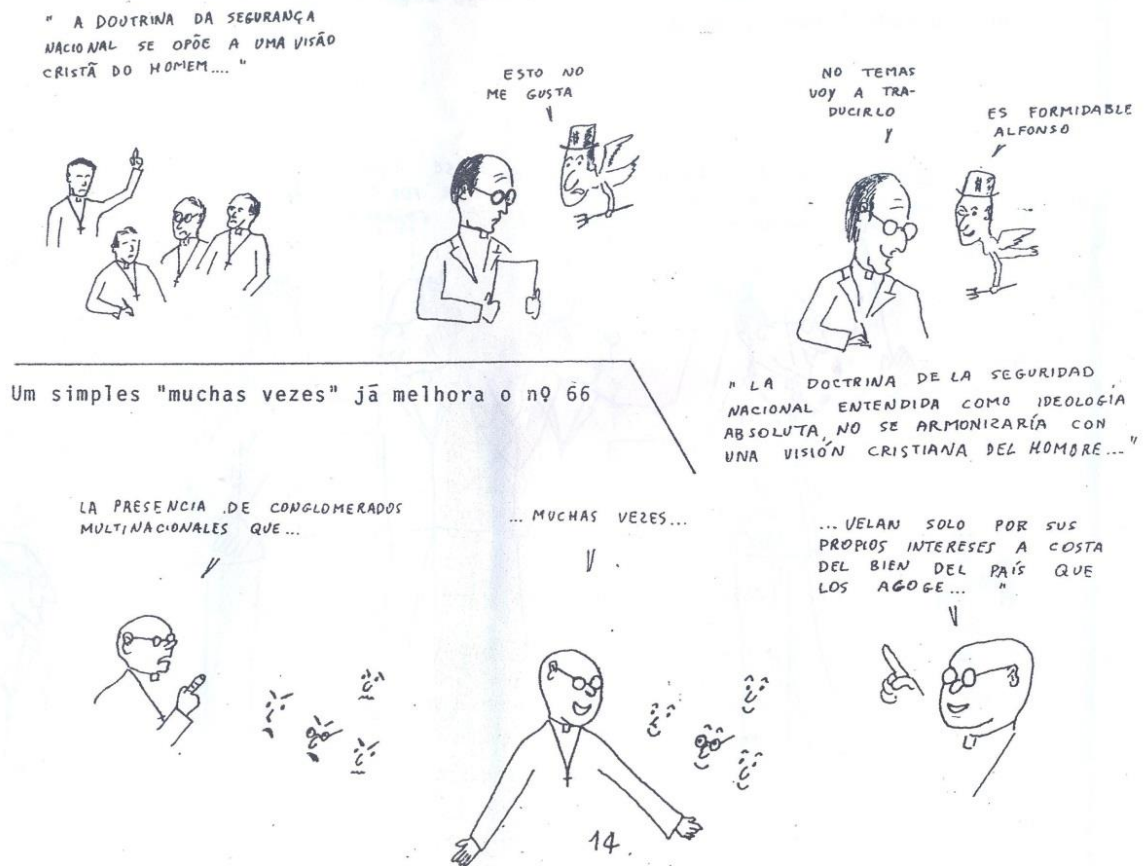 " A DOUTRINA DA SEGURANÇA
NACIONAL SE OPÕE A UMA VISÃO
CRISTÃ DO HOMEM.... "
ESTO NO
ME GUSTA
NO TEMAS
VOY A TRA-
DUCIRLO
ES FORMIDABLE
ALFONSO
" LA DOCTRINA DE LA SEGURIDAD
NACIONAL ENTENDIDA COMO IDEOLOGÍA
ABSOLUTA, NO SE ARMONIZARÍA CON
UNA VISIÓN CRISTIANA DEL HOMBRE..."
Um simples "muchas vezes" já melhora o nº 66
LA PRESENCIA DE CONGLOMERADOS
MULTINACIONALES QUE...
... MUCHAS VEZES...
... VELAN SOLO POR SUS
PROPIOS INTERESES A COSTA
DEL BIEN DEL PAÍS QUE
LOS AGOGE... "
14.